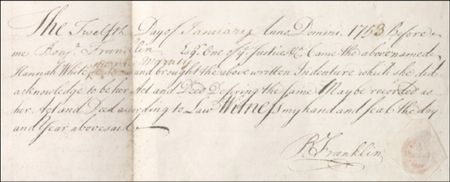 The Twelfth Day of January Anno Domini 1753 Before
me Benja. Franklin Esqr. One of ye Justices &c. Came the above named
Hannah White and brought the above written Indenture which she did
acknowledge to be her Act and Deed Desiring the same Maybe recorded as
her Act and Deed according to Law Witness my hand and seal the day
and Year abovesaid
B Franklin